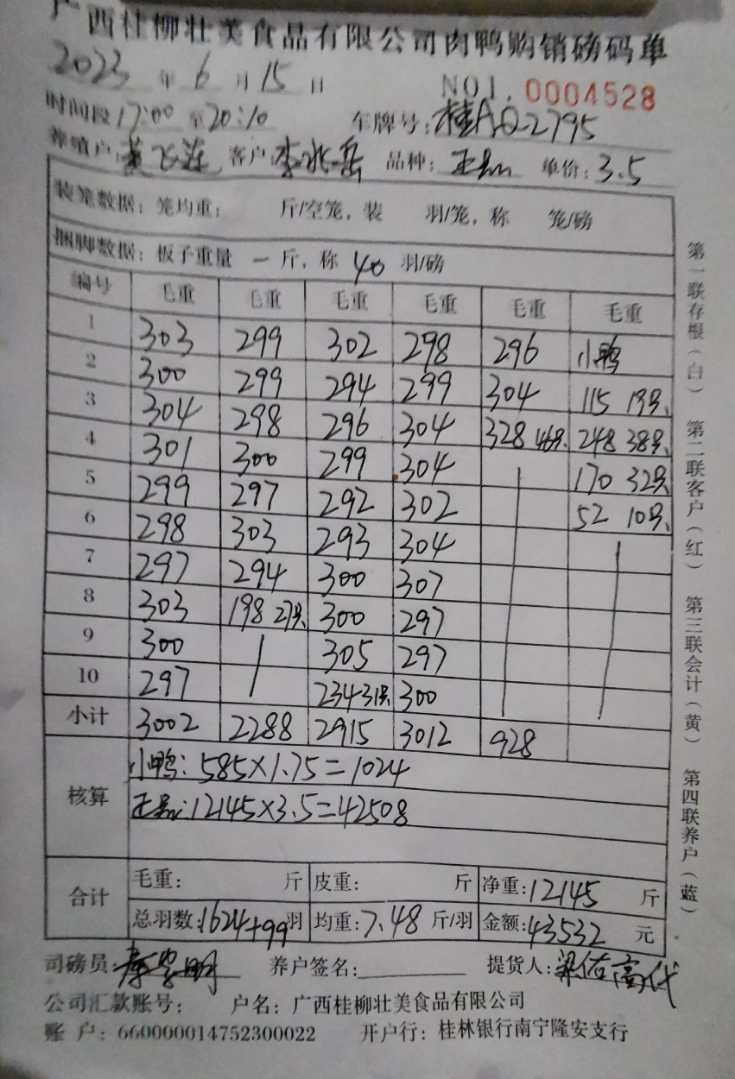 广西桂柳壮美食品有限公司肉鸭购销磅码单
2023 年 6 月 15 日 NO1. 0004528
时间段 17:00 至 20:10 车牌号: 桂AQ2795
养殖户: 黄飞莲 客户: 李兆岳 品种: 单价: 3.5
装笼数据: 笼均重: 斤/空笼, 装 羽/笼, 称 笼/磅
捆脚数据: 板子重量 一 斤, 称 40 羽/磅
编号 毛重 毛重 毛重 毛重 毛重 毛重
1 303 299 302 298 296 小鸭
2 300 299 294 299 304 115 19只
3 304 298 296 304 328 44只 248 38只
4 301 300 299 304 170 32只
5 299 297 292 302 52 10只
6 298 303 293 304
7 297 294 300 307
8 303 198 27只 300 297
9 300 305 297
10 297 234 31只 300
小计 3002 2288 2915 3012 928
核算 小鸭: 585×1.75=1024
12145×3.5=42508
合计 毛重: 斤 皮重: 斤 净重: 12145 斤
总羽数: 1624+99 羽 均重: 7.48 斤/羽 金额: 43532 元
司磅员: 养户签名: 提货人:
公司汇款账号: 户名: 广西桂柳壮美食品有限公司
账 户: 660000014752300022 开户行: 桂林银行南宁隆安支行
第一联存根(白) 第二联客户(红) 第三联会计(黄) 第四联养户(蓝)